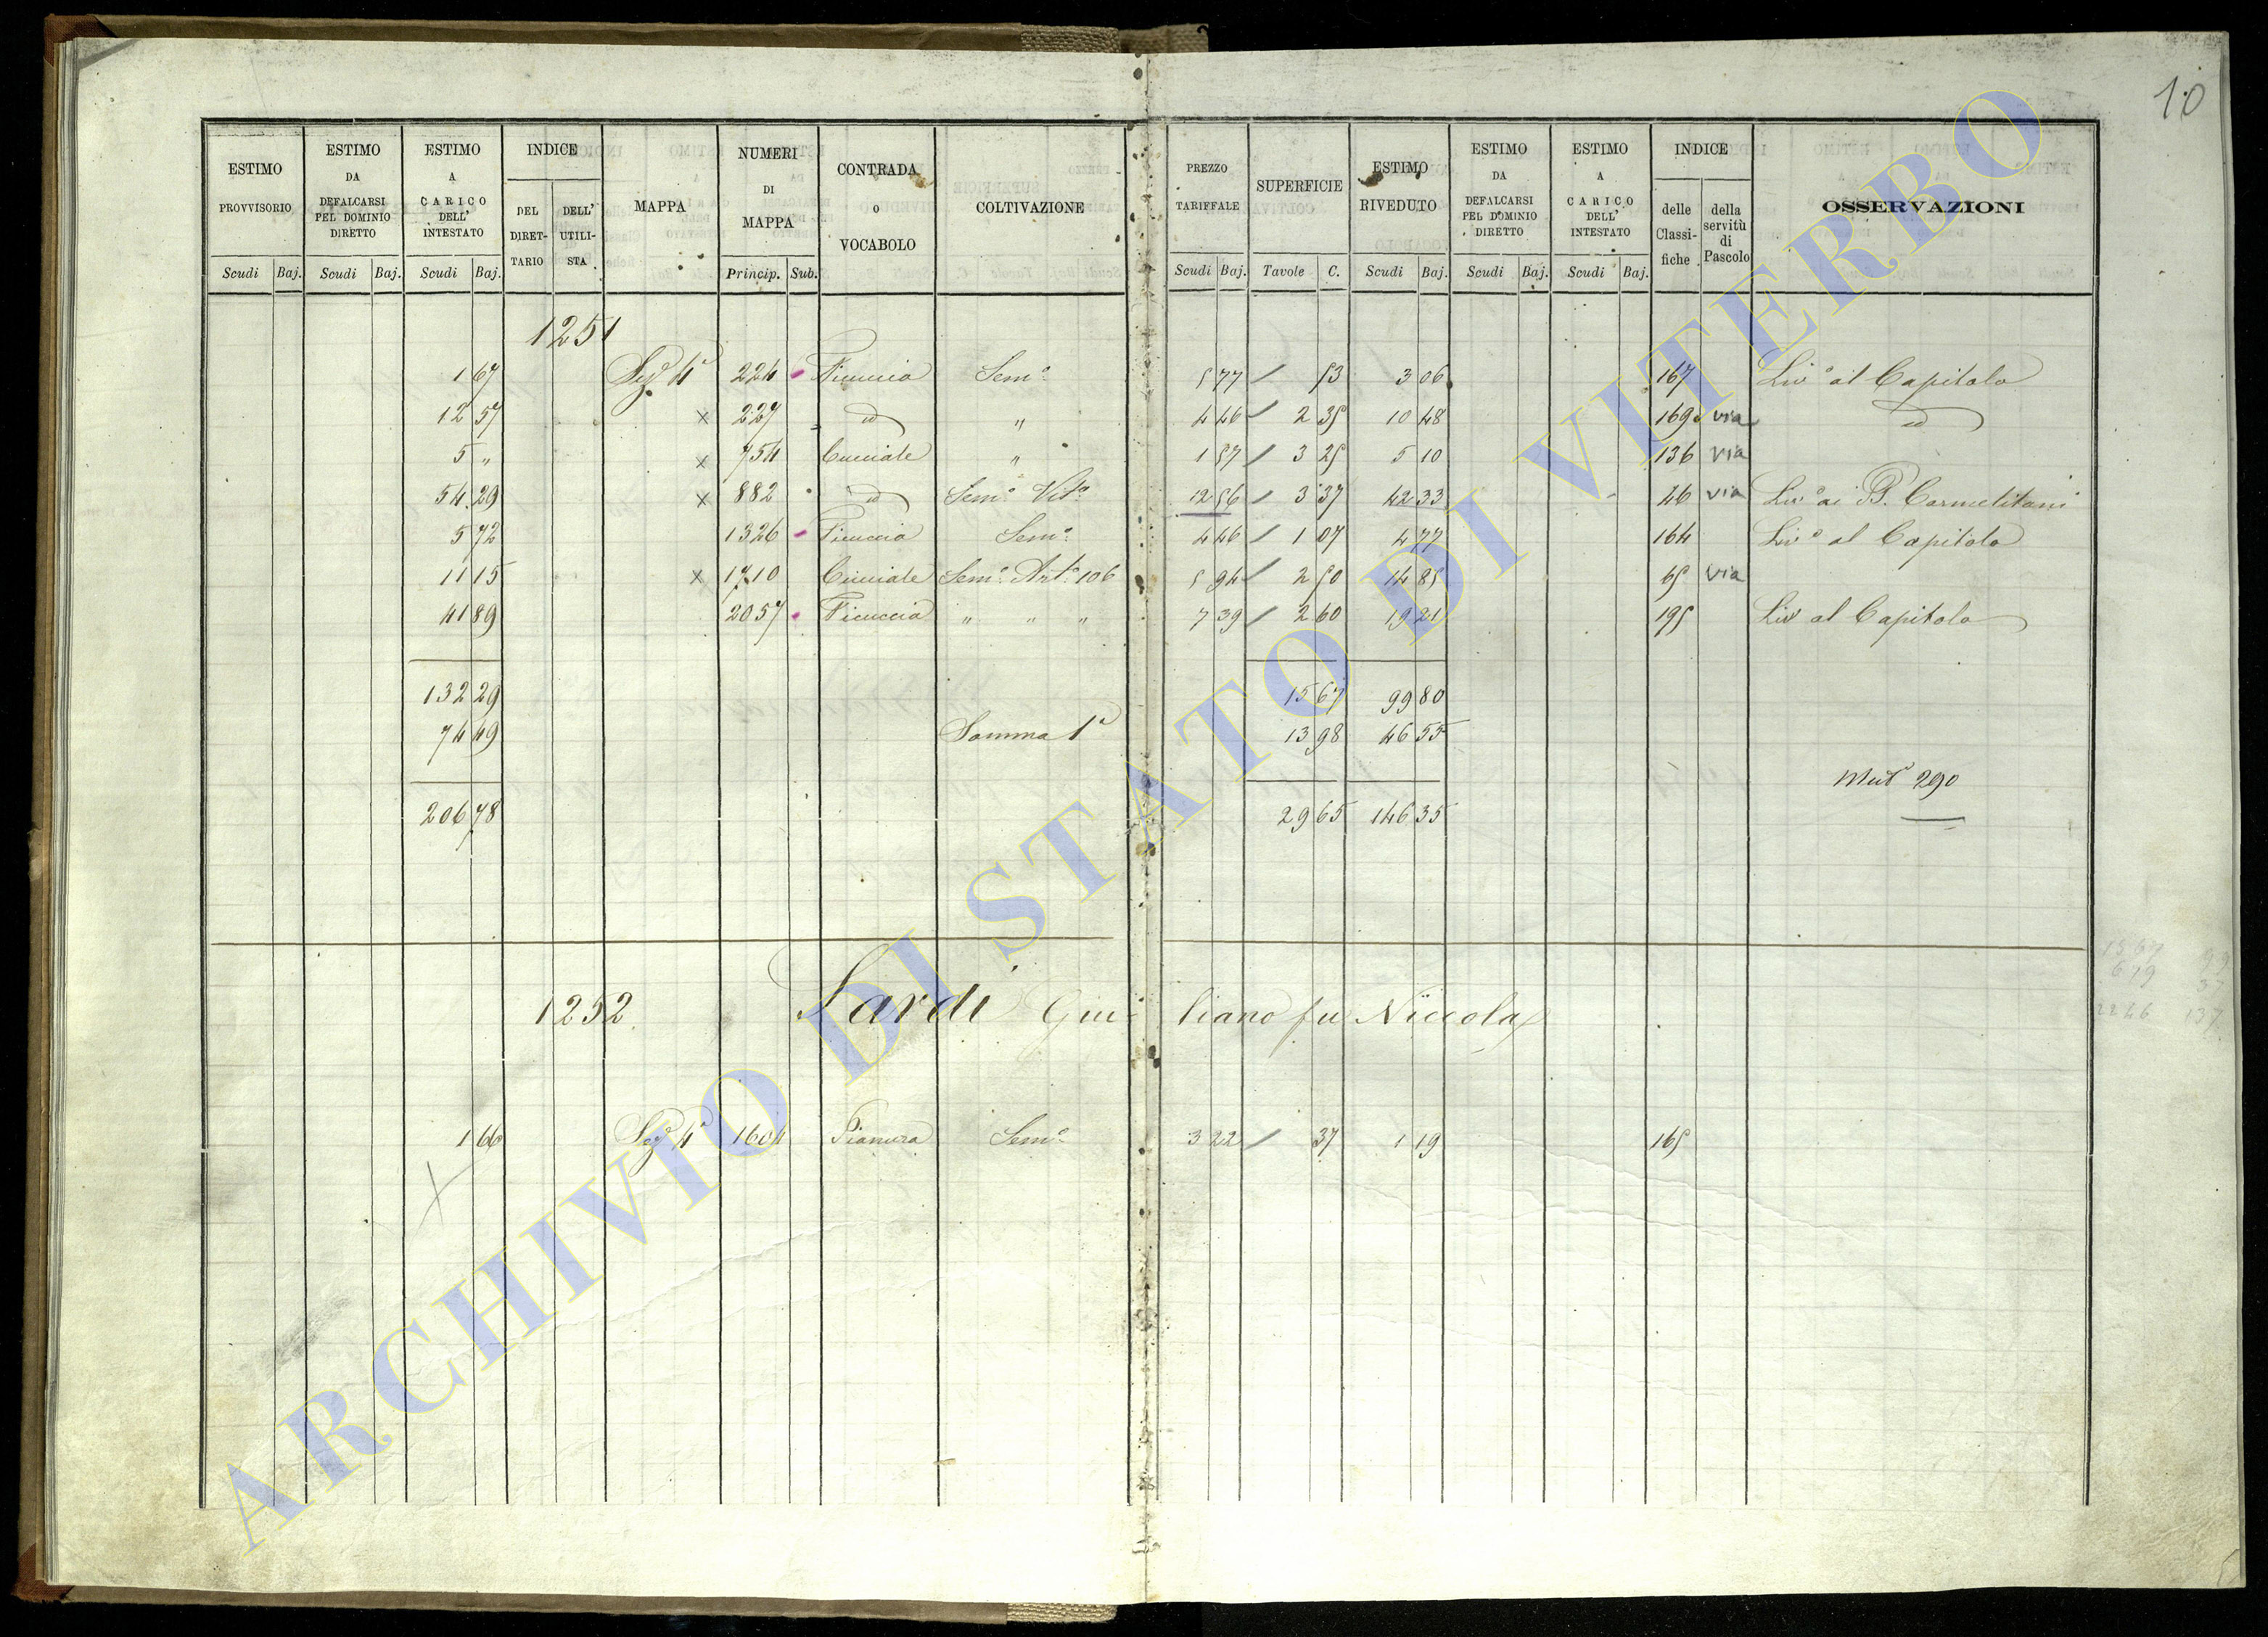 10
ESTIMO PROVVISORIO | ESTIMO DA DEFALCARSI PEL DOMINIO DIRETTO | ESTIMO A CARICO DELL' INTESTATO | INDICE DEL DIRETTARIO | DELL' UTILISTA | MAPPA | NUMERI DI MAPPA | CONTRADA O VOCABOLO | COLTIVAZIONE | PREZZO TARIFFALE | SUPERFICIE | ESTIMO RIVEDUTO | ESTIMO DA DEFALCARSI PEL DOMINIO DIRETTO | ESTIMO A CARICO DELL' INTESTATO | INDICE delle Classifiche | della servitù di Pascolo | OSSERVAZIONI
Scudi Baj. Scudi Baj. Scudi Baj. Princip. Sub. Scudi Baj. Tavole C. Scudi Baj. Scudi Baj. Scudi Baj.
1251
1 67 Sez. 4ª 224 Ficuccia Sem.º 5 77 / 53 3 06 167 Liv.º al Capitolo
12 57 x 227 id " 4 46 / 2 35 10 48 169 via id
5 " x 754 Cucciale " 1 57 / 3 25 5 10 136 via
54 29 x 882 id Sem.º Vit.º 12 56 / 3 37 42 33 46 via Liv.º ai P. Carmelitani
5 72 1326 Ficuccia Sem.º 4 46 / 1 07 4 77 164 Liv.º al Capitolo
11 15 x 1710 Cucciale Sem.º Art.º 106 5 94 / 2 50 14 85 65 via
41 89 2057 Ficuccia " " " 7 39 / 2 60 19 21 195 Liv al Capitolo
132 29 15 67 99 80
74 49 Somma 1ª 13 98 46 55
Mutª 290
206 78 29 65 146 35
1252 Sardi Giuliano fu Niccola
1 66 Sez. 4ª 1604 Pianura Sem.º 3 22 / 37 1 19 165
ARCHIVIO DI STATO DI VITERBO